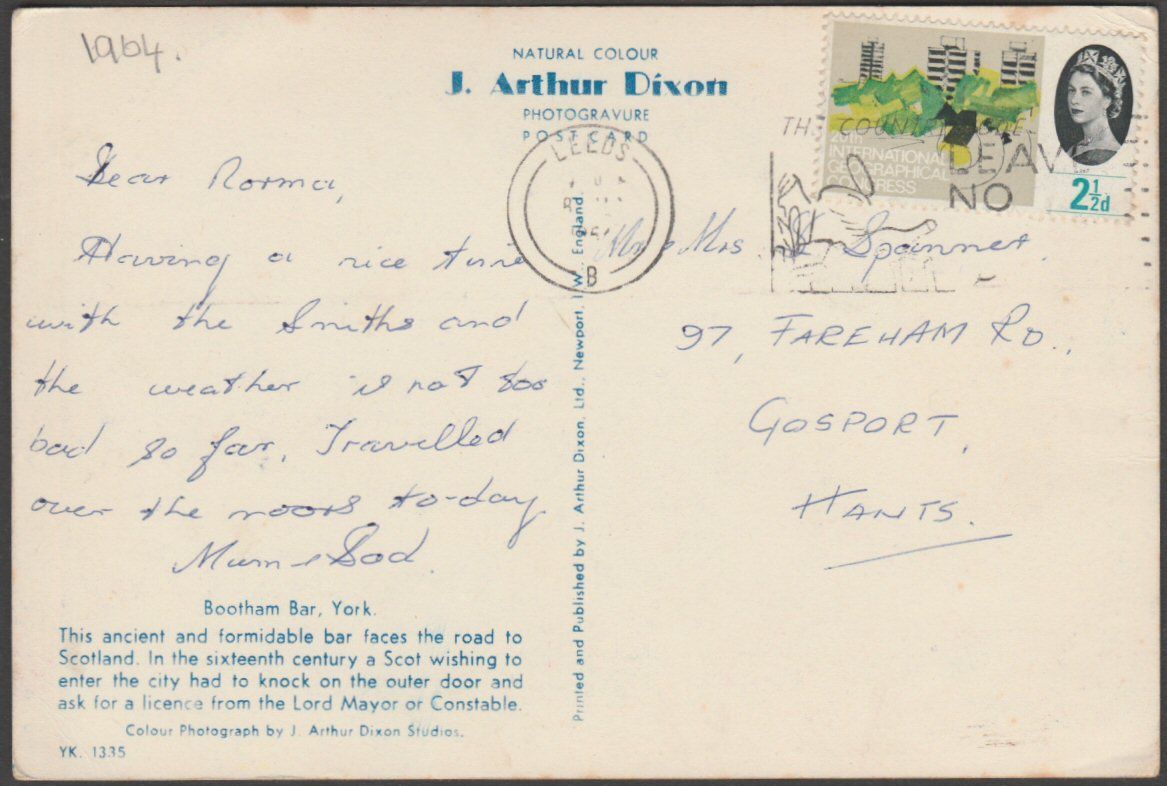 1964.
NATURAL COLOUR
J. Arthur Dixon
PHOTOGRAVURE
POST CARD
INTERNATIONAL
GEOGRAPHICAL
CONGRESS
2½d
THE COUNTRY CODE
LEAVE
NO
LEEDS
B
Dear Norma,
Having a nice time
with the Smiths and
the weather is not too
bad so far. Travelled
over the moors to-day
Mum & Dad.
Bootham Bar, York.
This ancient and formidable bar faces the road to
Scotland. In the sixteenth century a Scot wishing to
enter the city had to knock on the outer door and
ask for a licence from the Lord Mayor or Constable.
Colour Photograph by J. Arthur Dixon Studios.
YK. 1335
Printed and Published by J. Arthur Dixon, Ltd., Newport, I.W., England.
Mr & Mrs Spanner,
97, FAREHAM RD.,
GOSPORT,
HANTS.